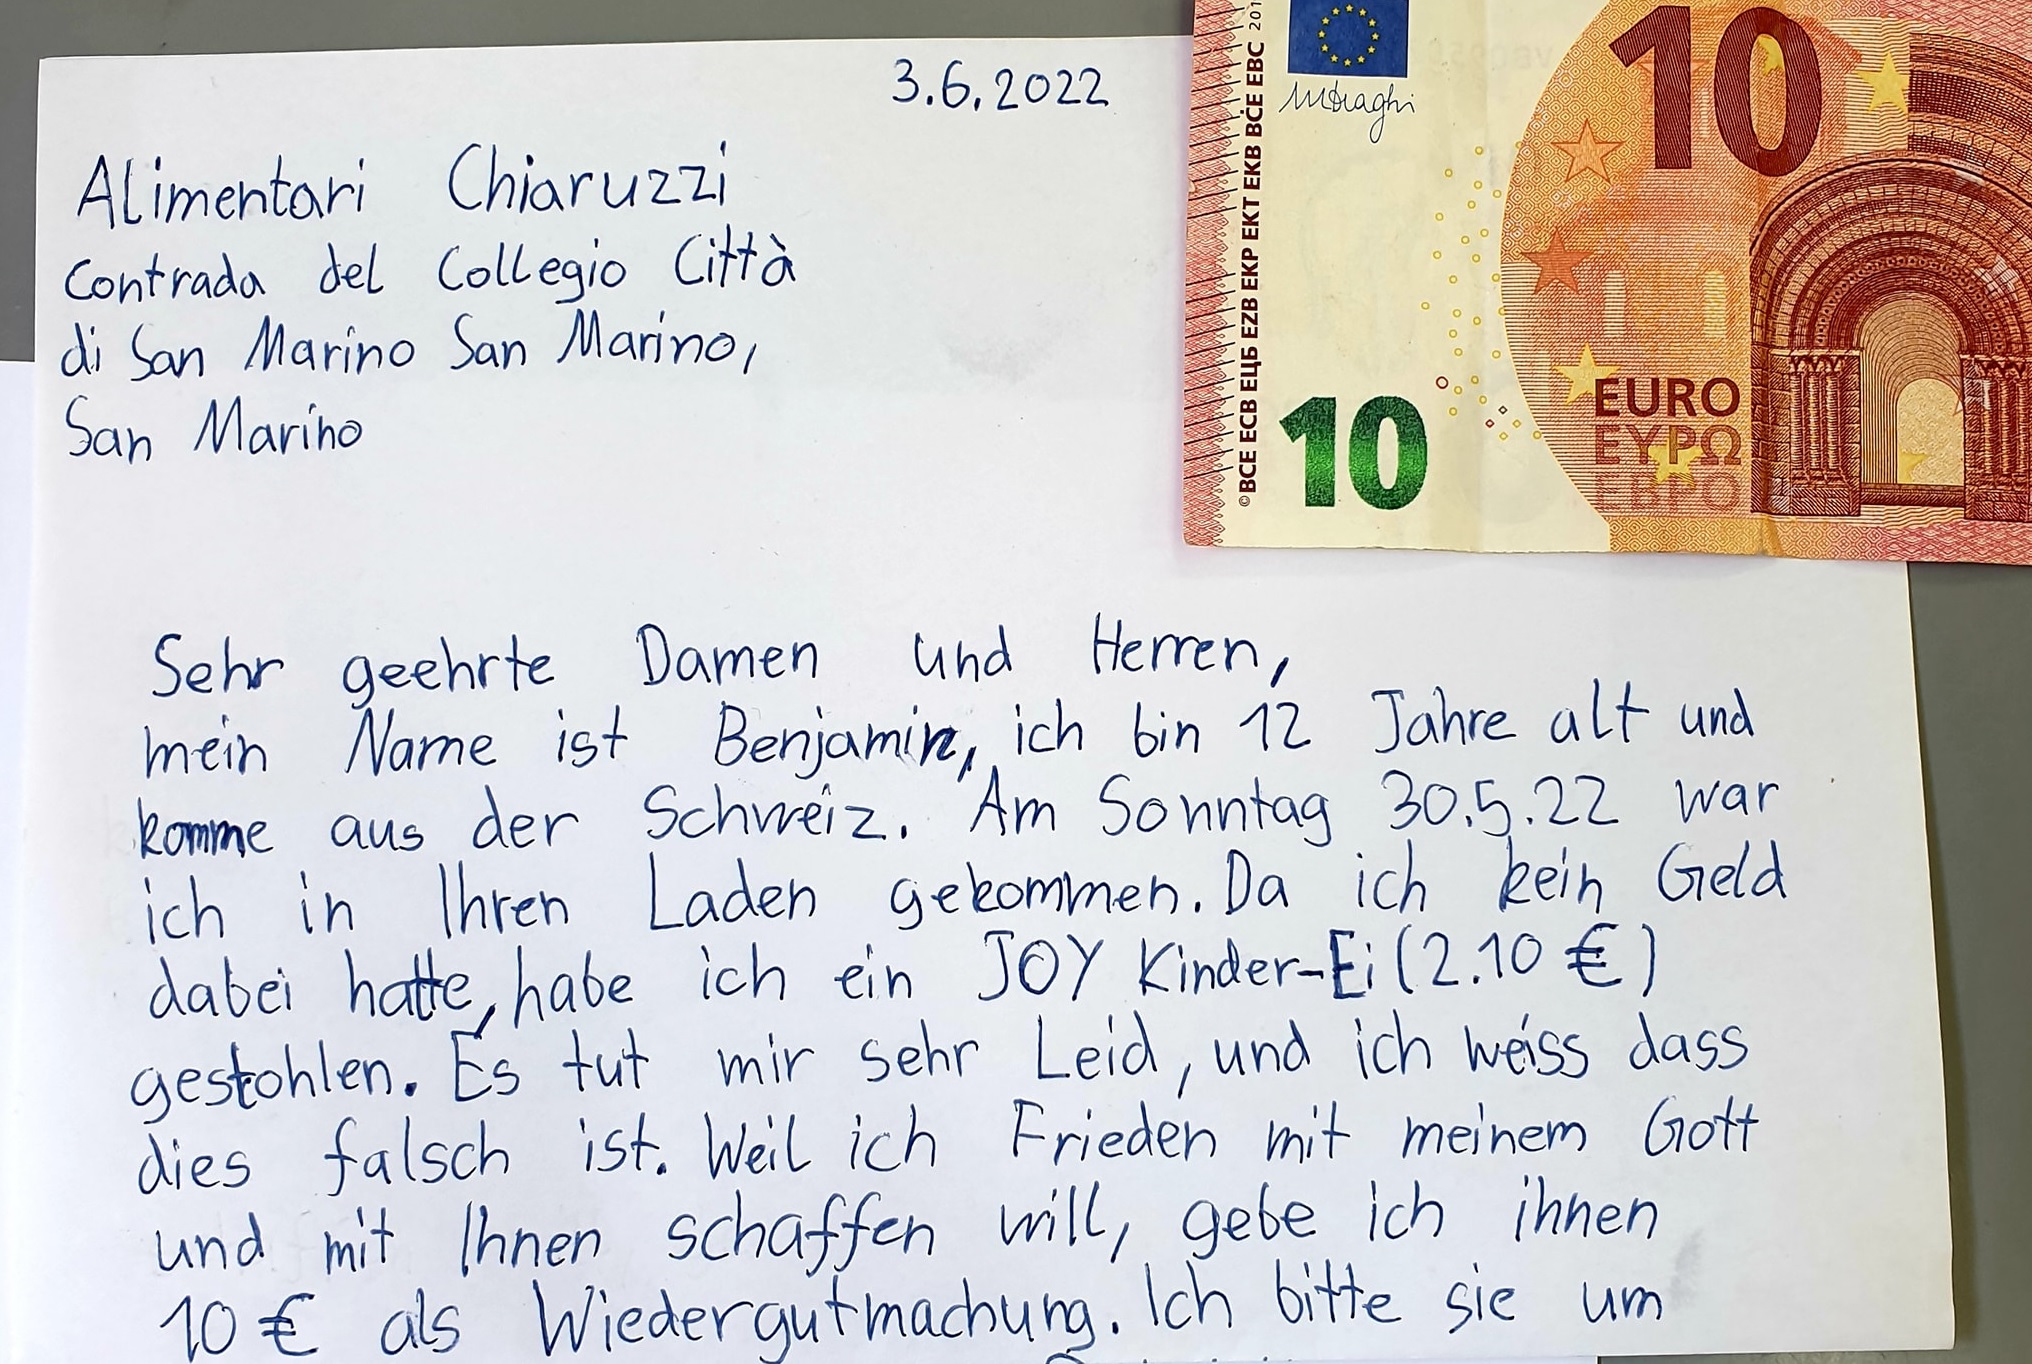 3.6.2022
Alimentari Chiaruzzi
Contrada del Collegio Città
di San Marino San Marino,
San Marino
Sehr geehrte Damen und Herren,
mein Name ist Benjamin, ich bin 12 Jahre alt und
komme aus der Schweiz. Am Sonntag 30.5.22 war
ich in Ihren Laden gekommen. Da ich kein Geld
dabei hatte, habe ich ein JOY Kinder-Ei (2.10 €)
gestohlen. Es tut mir sehr Leid, und ich weiss dass
dies falsch ist. Weil ich Frieden mit meinem Gott
und mit Ihnen schaffen will, gebe ich ihnen
10 € als Wiedergutmachung. Ich bitte sie um
©BCE ECB ЕЦБ EZB EKP EKT EKB BĊE EBC 201
MDraghi
10
10
EURO
ΕΥΡΩ
ЕВРО